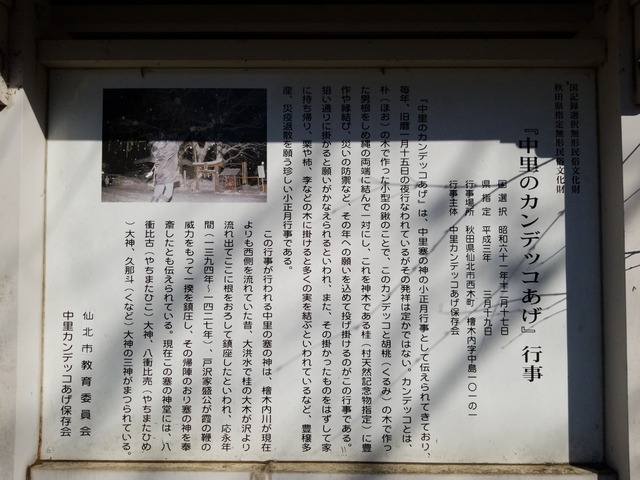 国記録選択無形民俗文化財
秋田県指定無形民俗文化財
『中里のカンデッコあげ』行事
国選択 昭和六十一年十二月十七日
県指定 平成三年 三月十九日
行事場所 秋田県仙北市西木町 檜木内字中島一〇一の一
行事主体 中里カンデッコあげ保存会
『中里のカンデッコあげ』は、中里塞の神の小正月行事として伝えられてきており、
毎年、旧暦一月十五日の夜行なわれているがその発祥は定かではない。カンデッコとは、
朴（ほお）の木で作った小型の鍬のことで、このカンデッコと胡桃（くるみ）の木で作っ
た男根をしめ縄の両端に結んで一対にし、これを神木である桂（村天然記念物指定）に豊
作や縁結び、災いの防禦など、その年への願いを込めて投げ掛けるのがこの行事である。
狙い通りに掛かると願いがかなえられるといわれ、また、その掛かったものをはずして家
に持ち帰り、栗や柿、李などの木に掛けると多くの実を結ぶといわれているなど、豊穣多
産、災疫退散を願う珍しい小正月行事である。
この行事が行われる中里の塞の神は、檜木内川が現在
よりも西側を流れていた昔、大洪水で桂の大木が沢より
流れ出てここに根をおろして鎮座したといわれ、応永年
間（一三九四年～一四二七年）、戸沢家盛公が霞の鞭の
威力をもって一揆を鎮圧し、その帰陣のおり塞の神を奉
斎したとも伝えられている。現在この塞の神堂には、八
衝比古（やちまたひこ）大神、八衝比売（やちまたひめ
）大神、久那斗（くなど）大神の三神がまつられている。
仙北市教育委員会
中里カンデッコあげ保存会